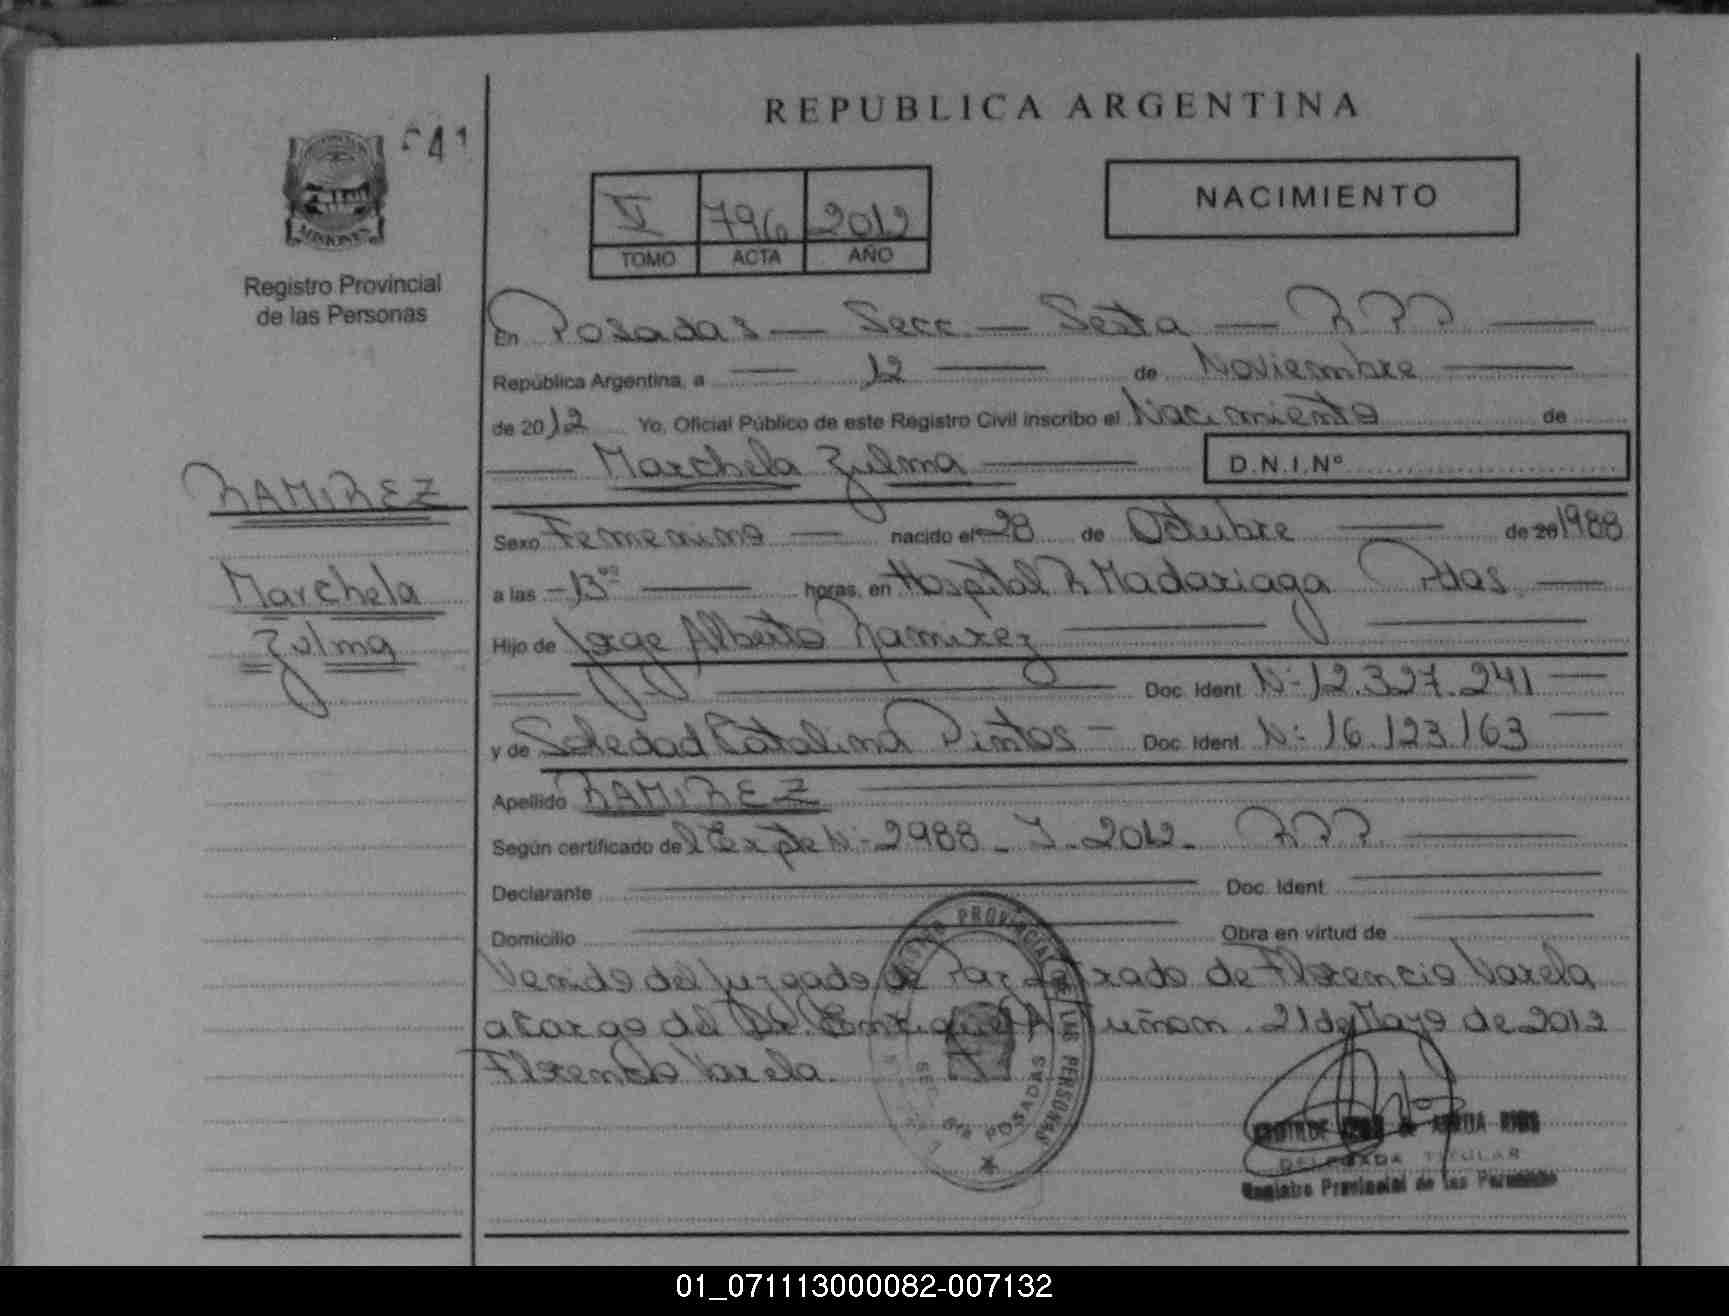 REPUBLICA ARGENTINA
641
MISIONES
Registro Provincial
de las Personas
V 796 2012
TOMO ACTA AÑO
NACIMIENTO
En Posadas — Secc — Sexta — RPP —
República Argentina, a — 12 — de Noviembre —
de 2012 Yo, Oficial Público de este Registro Civil inscribo el Nacimiento de
— Marchela Zulma — D.N.I.Nº
RAMIREZ
Marchela
Zulma
Sexo Femenino — nacido el 28 de Octubre — de 20 1988
a las - 13 — horas, en Hospital R Madariaga Pdas —
Hijo de Jorge Alberto Ramirez —
— Doc. Ident. Nº 12.327.241 —
y de Soledad Catalina Pintos — Doc. Ident. Nº 16.123.163 —
Apellido RAMIREZ —
Según certificado del Expte Nº 2988 - J - 2012 - RPP —
Declarante — Doc. Ident. —
Domicilio — Obra en virtud de —
Venido del Juzgado de Paz Letrado de Florencio Varela
a Cargo del Dr. Enrique A 21 de Mayo de 2012
Florencio Varela.
REGISTRO PROVINCIAL DE LAS PERSONAS
6ta POSADAS
DELEGADA TITULAR
Registro Provincial de las Personas
01_071113000082-007132